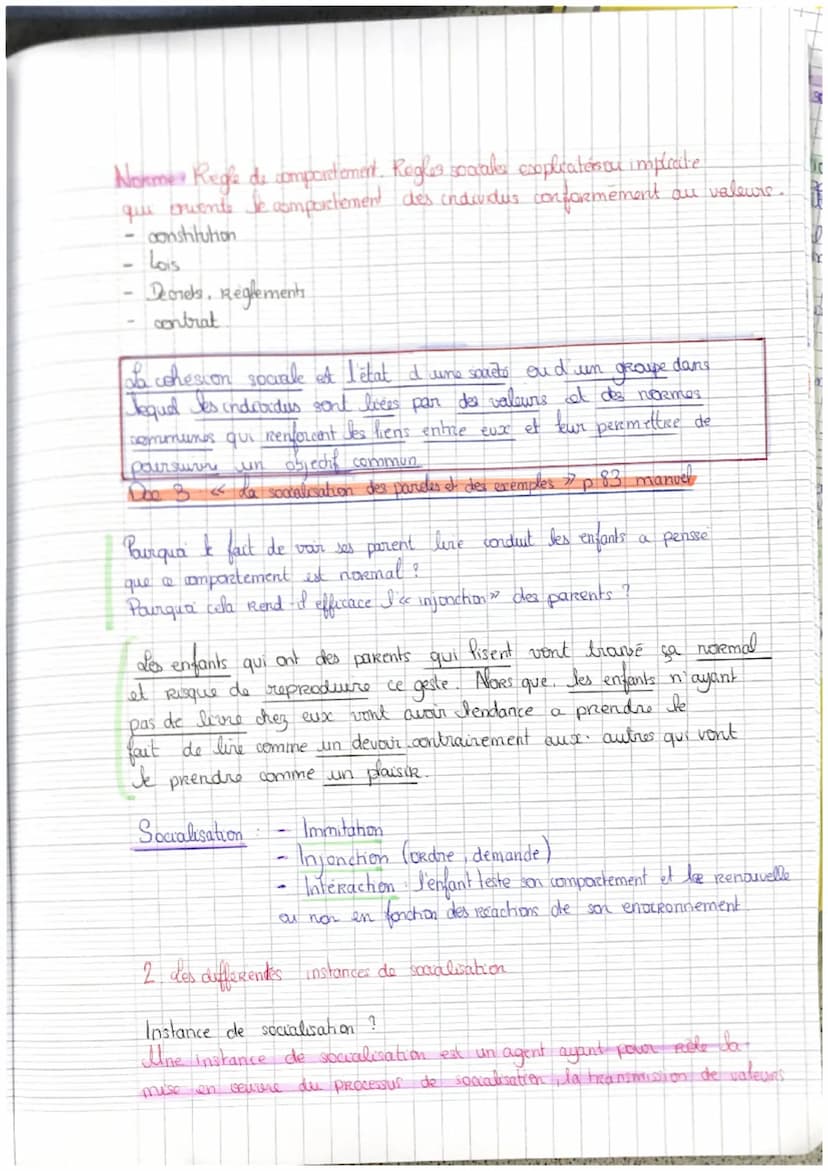 Norme : Regle de comportement. Regles sociales explicites ou implicite
qui oriente le comportement des individus conformément au valeurs.
- constitution
- Lois
- Decrets, Réglements
- contrat.
La cohesion sociale est l'état d'une société ou d'un groupe dans
lequel les individus sont liées par des valeurs et des normes
communes qui renforcent les liens entre eux et leur permettre de
poursuivre un objectif commun
Doc 3 « La socialisation des paroles et des exemples » p 83 manuel
Pourquoi le fait de voir ses parent lire conduit les enfants a pensse
que ce comportement est normal ?
Pourquoi cela Rend-il efficace l'« injonction » des parents ?
Les enfants qui ont des parents qui lisent vont trouvé ça normal
et Risque de reproduire ce geste. Alors que, les enfants n'ayant
pas de livre chez eux vont avoir tendance a prendre le
fait de lire comme un devoir contrairement aux autres qui vont
le prendre comme un plaisir.
Socialisation : - Immitation
- Injonction (ordre, demande)
- Intéraction : l'enfant teste son comportement et le Renouvelle
ou non en fonction des réactions de son environnement
2. Les differentes instances de socialisation
Instance de socialisation ?
Une instance de socialisation est un agent ayant pour rôle la
mise en oeuvre du processus de socialisation, la transmission de valeurs